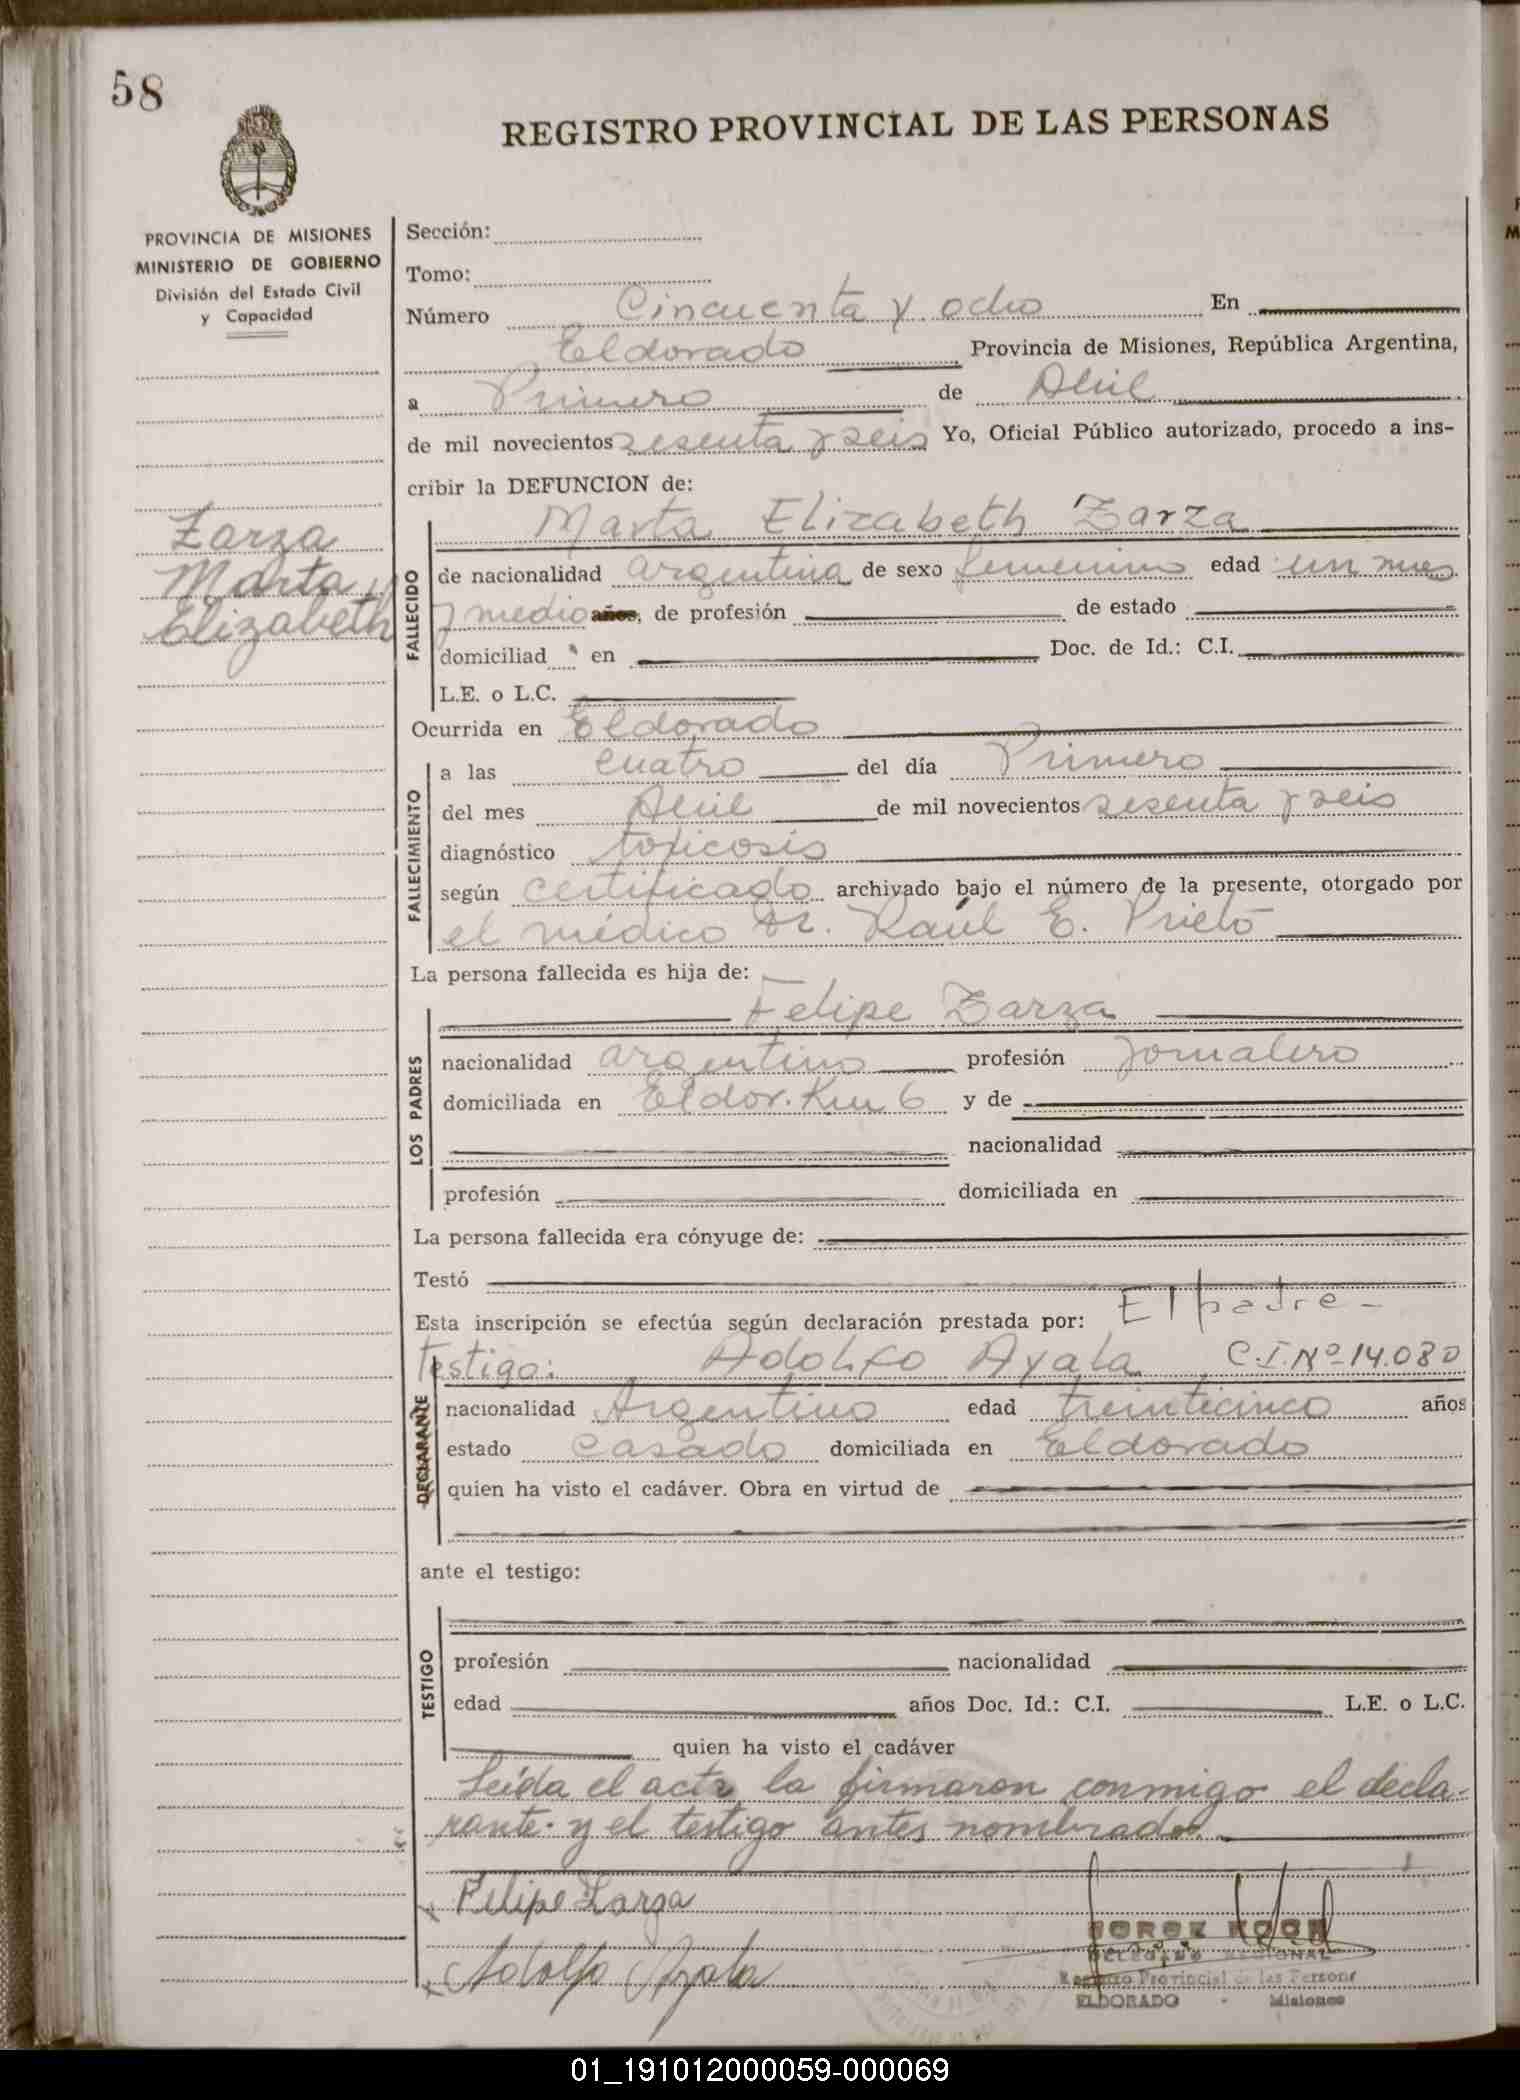 58
REGISTRO PROVINCIAL DE LAS PERSONAS
PROVINCIA DE MISIONES
MINISTERIO DE GOBIERNO
División del Estado Civil
y Capacidad
Zarza
Marta
Elizabeth
Sección:
Tomo:
Número Cincuenta y ocho En
Eldorado Provincia de Misiones, República Argentina,
a Primero de Abril
de mil novecientos sesenta y seis Yo, Oficial Público autorizado, procedo a ins-
cribir la DEFUNCION de:
FALLECIDO
Marta Elizabeth Zarza
de nacionalidad argentina de sexo femenino edad un mes
y medio años, de profesión de estado
domiciliad a en Doc. de Id.: C.I.
L.E. o L.C.
Ocurrida en Eldorado
FALLECIMIENTO
a las cuatro del día Primero
del mes Abril de mil novecientos sesenta y seis
diagnóstico toxicosis
según certificado archivado bajo el número de la presente, otorgado por
el médico Dr. Raúl E. Prieto
La persona fallecida es hija de:
LOS PADRES
Felipe Zarza
nacionalidad argentino profesión jornalero
domiciliada en Eldor. Km 6 y de
nacionalidad
profesión domiciliada en
La persona fallecida era cónyuge de:
Testó
Esta inscripción se efectúa según declaración prestada por: El padre-
Testigo: Adolfo Ayala C.I. Nº 14.080
DECLARANTE
nacionalidad Argentino edad treinticinco años
estado casado domiciliada en Eldorado
quien ha visto el cadáver. Obra en virtud de
ante el testigo:
TESTIGO
profesión nacionalidad
edad años Doc. Id.: C.I. L.E. o L.C.
quien ha visto el cadáver
Leída el acta, la firmaron conmigo el decla-
rante y el testigo antes nombrados.
Felipe Zarza
Adolfo Ayala
DELEGADO REGIONAL
Registro Provincial de las Persons
ELDORADO - Misiones
01_191012000059-000069